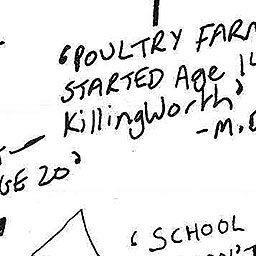 'POULTRY FARM
STARTED Age 14
Killingworth'
-M.
GE 20'
'SCHOOL